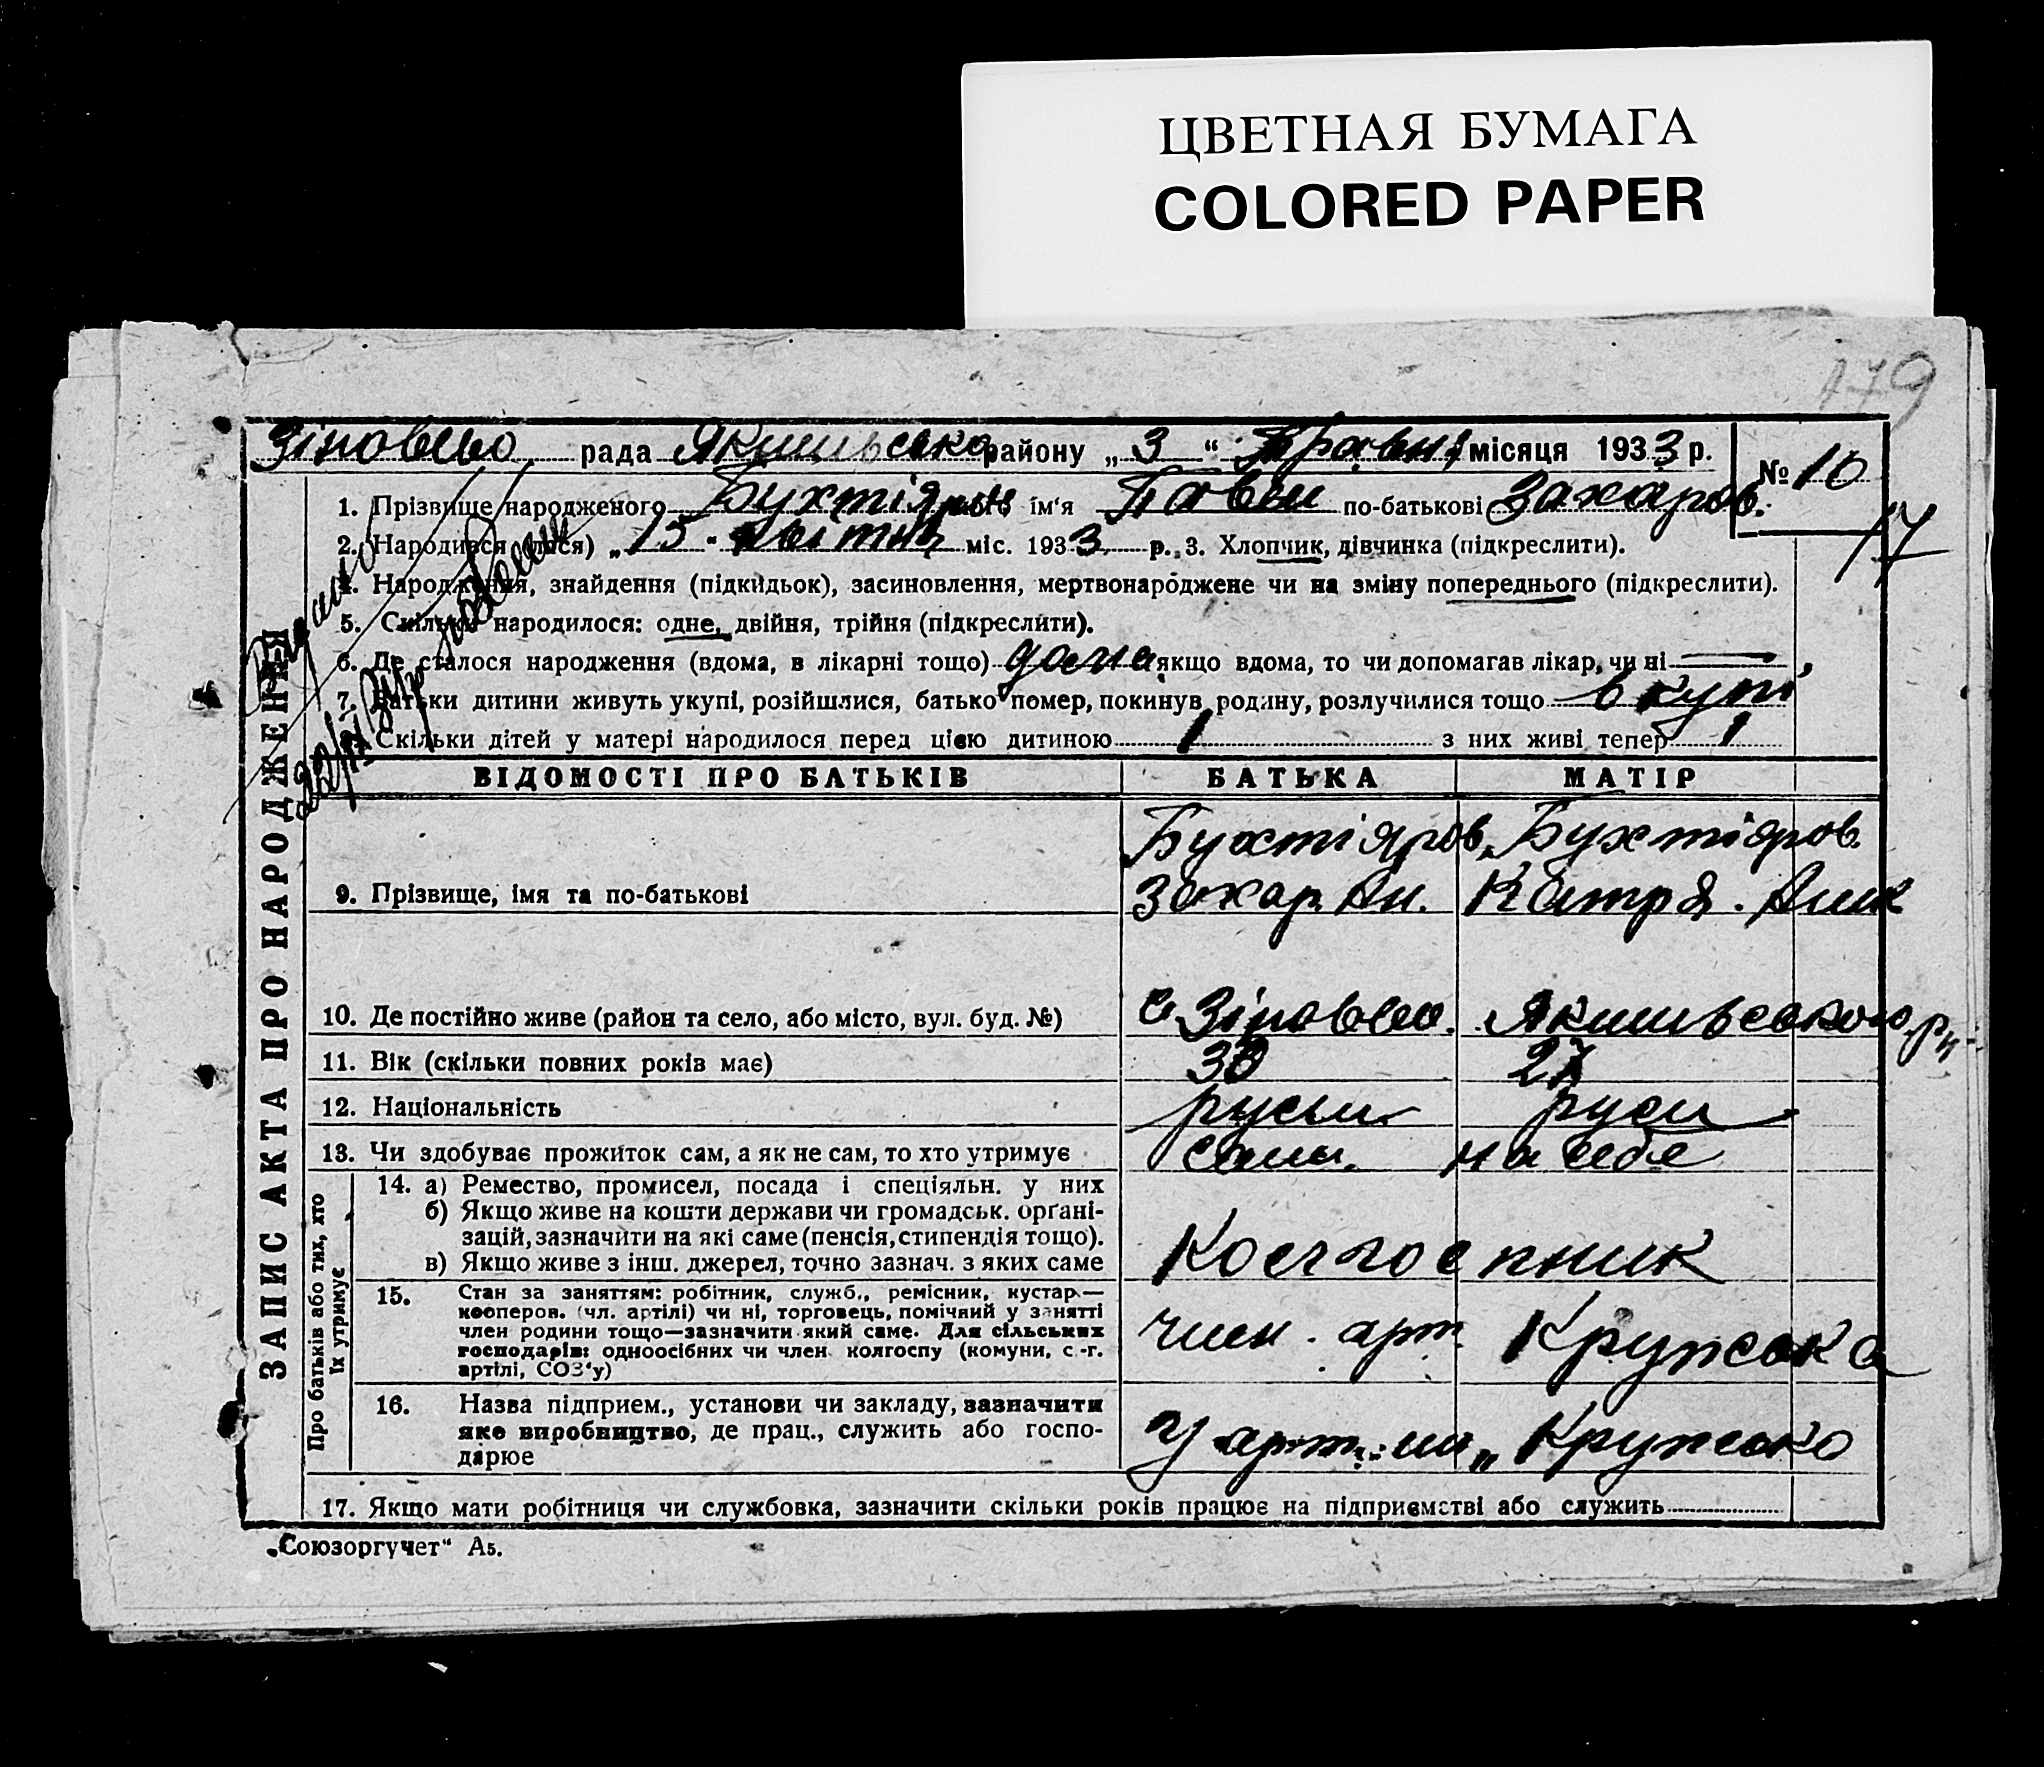 ЦВЕТНАЯ БУМАГА
COLORED PAPER
179
Зіновєво рада Якимівсько району „3“ Травня місяця 1933 р. № 10
1. Прізвище народженого Бухтіяров ім‘я Павл по-батькові Захаров.
17
2. Народився (лася) „15“ квітня міс. 1933 р. 3. Хлопчик, дівчинка (підкреслити).
4. Народження, знайдення (підкидьок), засиновлення, мертвонароджене чи на зміну попереднього (підкреслити).
5. Скільки народилося: одне, двійня, трійня (підкреслити).
6. Де сталося народження (вдома, в лікарні тощо) дома якщо вдома, то чи допомагав лікар, чи ні —
7. Батьки дитини живуть укупі, розійшлися, батько помер, покинув родину, розлучилися тощо в купі
Скільки дітей у матері народилося перед цією дитиною 1 з них живі тепер 1
ЗАПИС АКТА ПРО НАРОДЖЕННЯ
ВІДОМОСТІ ПРО БАТЬКІВ БАТЬКА МАТІР
Бухтіяров Бухтіяров.
9. Прізвище, імя та по-батькові Захар. Ан. Катря.
10. Де постійно живе (район та село, або місто, вул. буд. №) с. Зіновєво. Якимівського рн.
11. Вік (скільки повних років має) 30 27
12. Національність руськ. руськ
13. Чи здобуває прожиток сам, а як не сам, то хто утримує сами. на себе
Про батьків або тих, хто їх утримує
14. а) Ремество, промисел, посада і спеціяльн. у них
б) Якщо живе на кошти держави чи громадськ. орґані-
зацій, зазначити на які саме (пенсія, стипендія тощо).
в) Якщо живе з інш. джерел, точно зазнач. з яких саме Колгоспник
15. Стан за заняттям: робітник, служб., ремісник, кустар—
кооперов. (чл. артілі) чи ні, торговець, помічний у занятті
член родини тощо—зазначити який саме. Для сільських
господарів: одноосібних чи член колгоспу (комуни, с.-г.
артілі, СОЗ‘у) член. арт. Крупська
16. Назва підприєм., установи чи закладу, зазначити
яке виробництво, де прац., служить або госпо-
дарює У арт. им „Крупсько
17. Якщо мати робітниця чи службовка, зазначити скільки років працює на підприємстві або служить
„Союзоргучет“ А5.